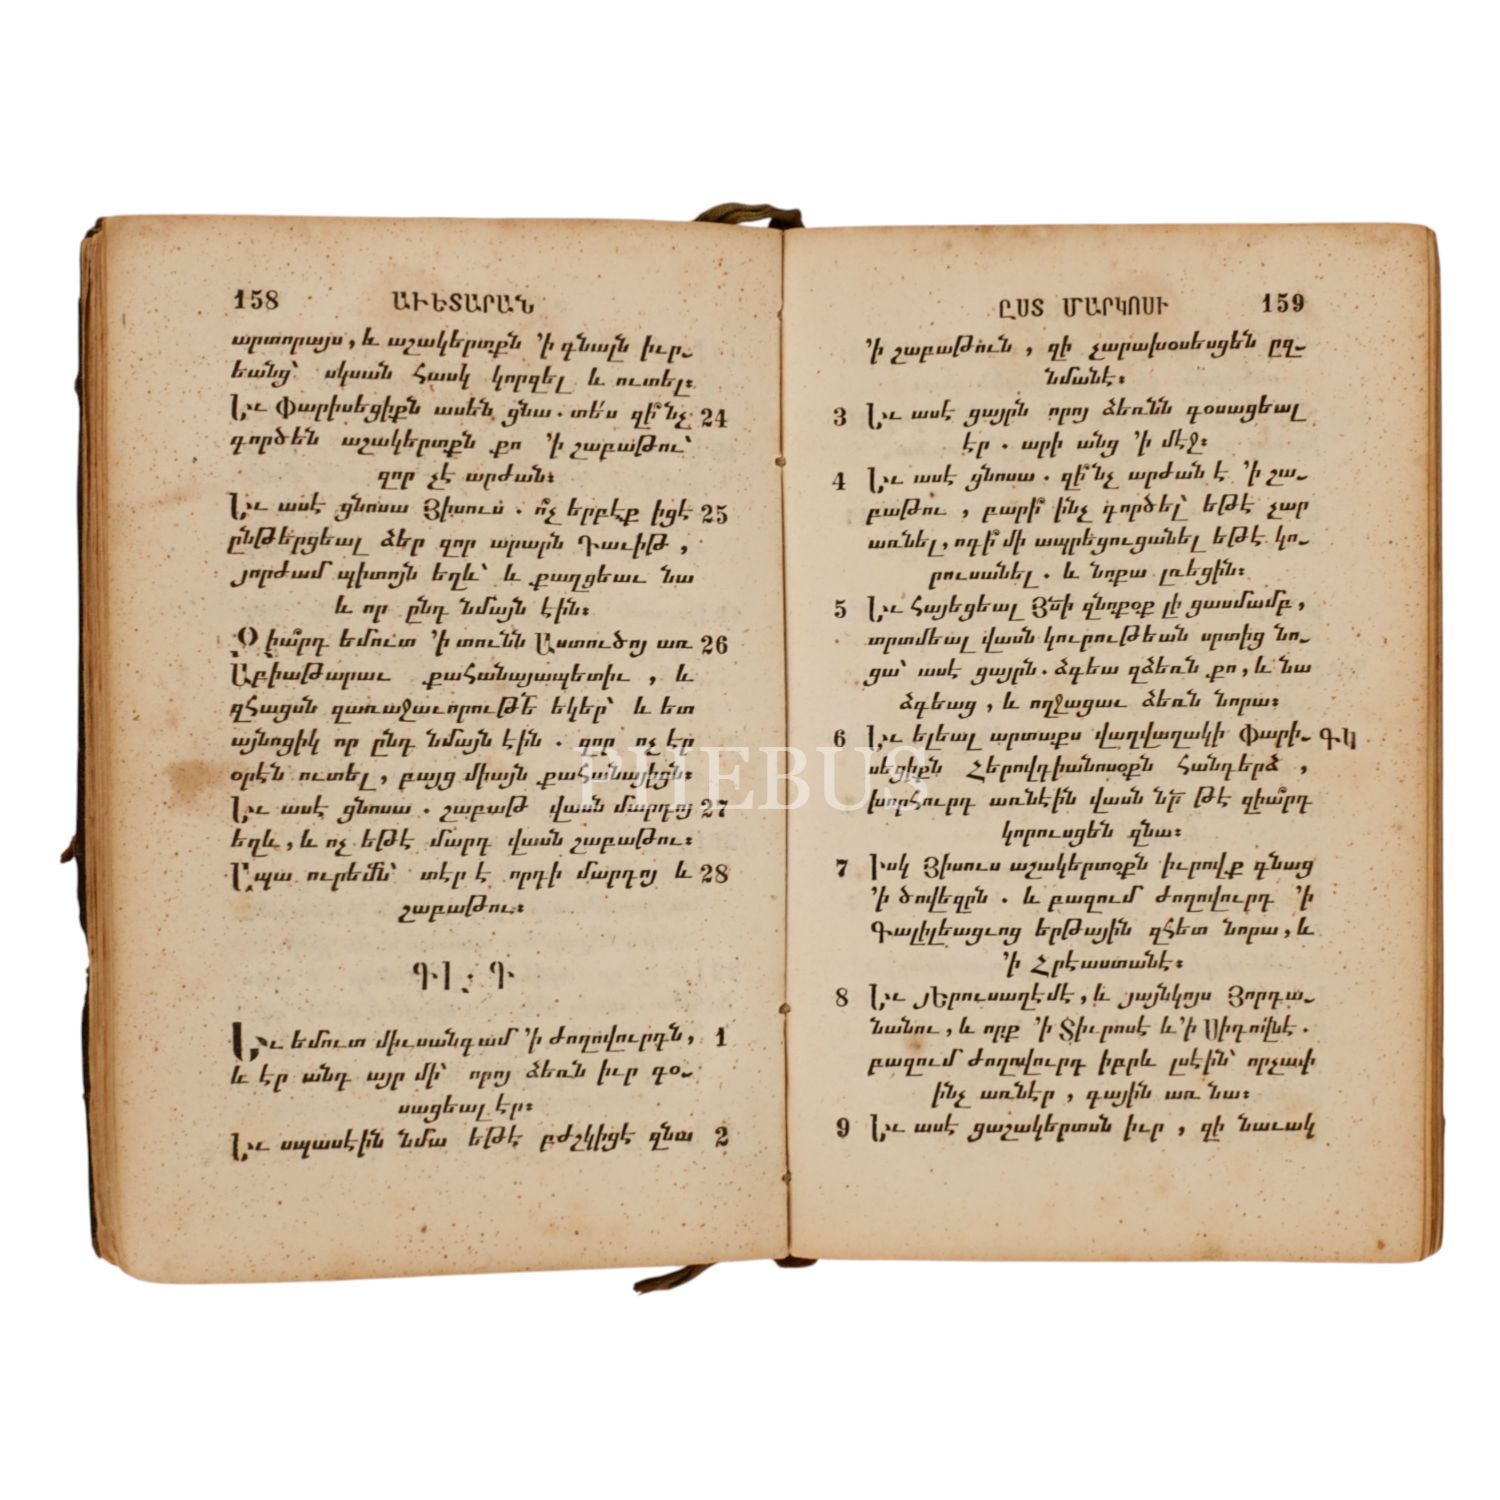 158 ԱՒԵՏԱՐԱՆ
արտորայս, և աշակերտքն ՚ի գնալն իւր֊
եանց՝ սկսան հասկ կորզել և ուտել։
Եւ Փարիսեցիքն ասեն ցնա. տե՛ս զի՞նչ 24
գործեն աշակերտքն քո ՚ի շաբաթու՝
զոր չէ արժան։
Եւ ասէ ցնոսա Յիսուս. ո՞չ երբէք իցէ 25
ընթերցեալ ձեր զոր արարն Դաւիթ,
յորժամ պիտոյն եղև՝ և քաղցեաւ նա
և որ ընդ նմայն էին։
Զիա՞րդ եմուտ ՚ի տունն Աստուծոյ առ 26
Աբիաթարաւ քահանայապետիւ, և
զհացսն զառաջաւորութե՟ եկեր՝ և ետ
այնոցիկ որ ընդ նմայն էին. զոր ոչ էր
օրէն ուտել, բայց միայն քահանայիցն։
Եւ ասէ ցնոսա. շաբաթ վասն մարդոյ 27
եղև, և ոչ եթէ մարդ վասն շաբաթու։
Ապա ուրեմն՝ տէր է որդի մարդոյ և 28
շաբաթու։
ԳԼ. Գ
Եւ եմուտ միւսանգամ ՚ի ժողովուրդն, 1
և էր անդ այր մի՝ որոյ ձեռն իւր գօ֊
սացեալ էր։
Եւ սպասէին նմա եթէ բժշկիցէ զնա 2
ԸՍՏ ՄԱՐԿՈՍԻ 159
՚ի շաբաթուն, զի չարախօսեսցեն ըզ֊
նմանէ։
3 Եւ ասէ ցայրն որոյ ձեռնն գօսացեալ
էր. արի անց ՚ի մէջ։
4 Եւ ասէ ցնոսա. զի՞նչ արժան է ՚ի շա֊
բաթու, բարի՞ ինչ գործել՝ եթէ չար
առնել, ոգի՞ մի ապրեցուցանել եթէ կո֊
րուսանել. և նոքա լռեցին։
5 Եւ հայեցեալ Յս՟ի զնոքօք լի ցասմամբ,
տրտմեալ վասն կուրութեան սրտից նո֊
ցա՝ ասէ ցայրն. ձգեա զձեռն քո, և նա
ձգեաց, և ողջացաւ ձեռն նորա։
6 Եւ ելեալ արտաքս վաղվաղակի Փարի֊ ԳԿ
սեցիքն Հերովդիանոսօքն հանդերձ,
խորհուրդ առնէին վասն նր՟ թէ զիա՞րդ
կորուսցեն զնա։
7 Իսկ Յիսուս աշակերտօքն իւրովք գնաց
՚ի ծովեզրն. և բազում ժողովուրդ ՚ի
Գալիլեացւոց երթային զհետ նորա, և
՚ի Հրէաստանէ։
8 Եւ յԵրուսաղէմէ, և յայնկոյս Յորդա֊
նանու, և որք ՚ի Տիւրոսէ և ՚ի Սիդովնէ.
բազում ժողովուրդ իբրև լսէին՝ որչափ
ինչ առնէր, գային առ նա։
9 Եւ ասէ ցաշակերտսն իւր, զի նաւակ
PHEBUS